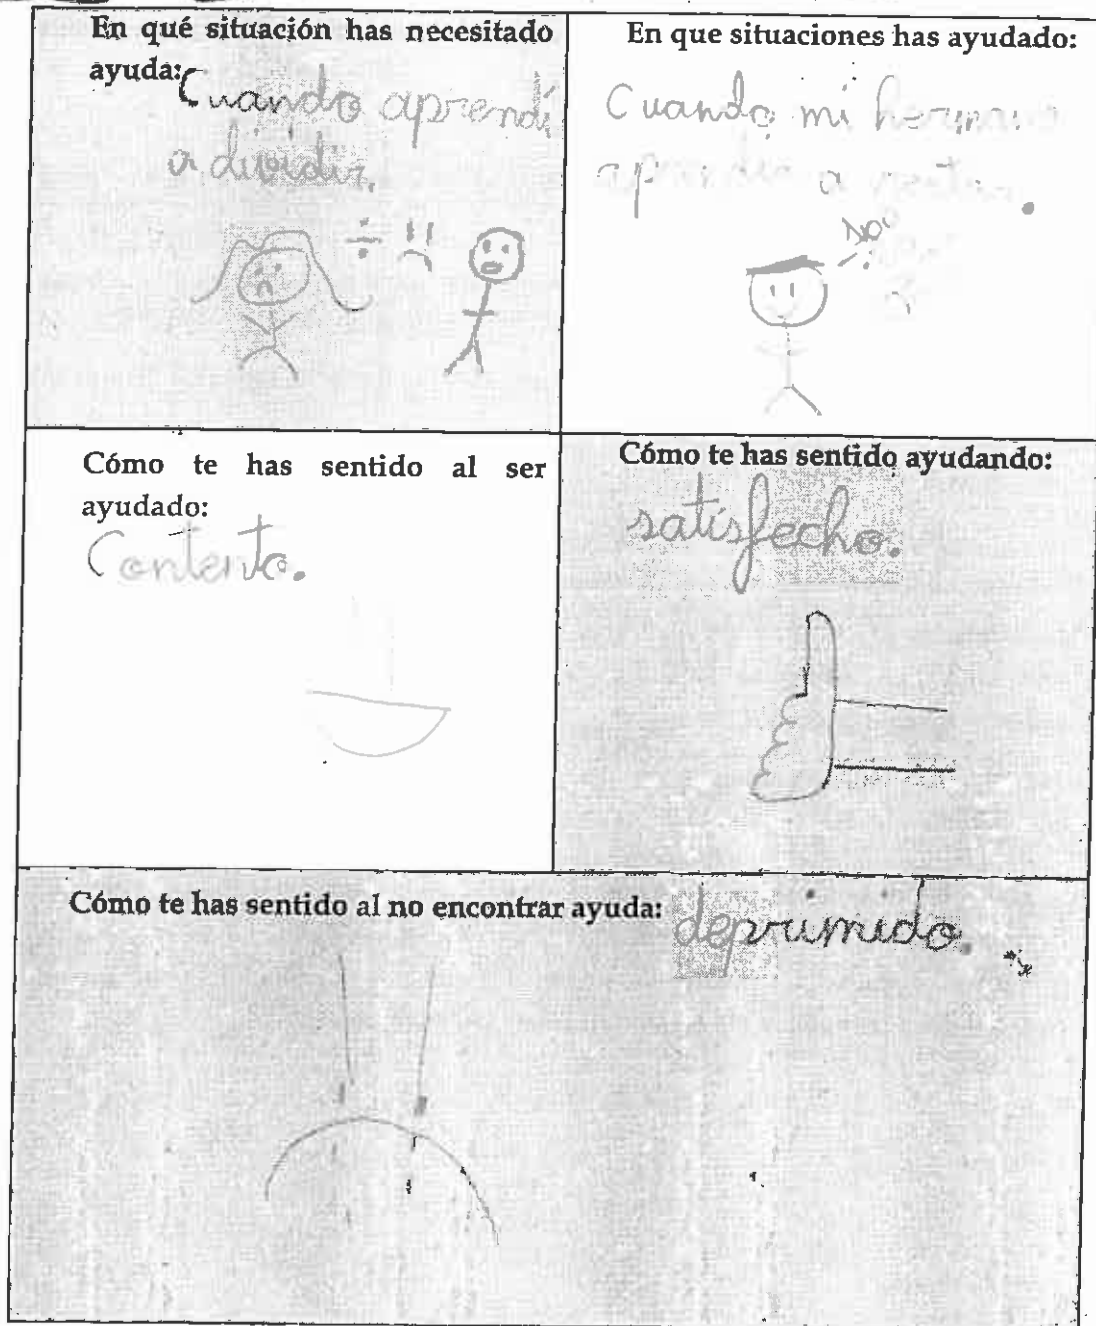 En qué situación has necesitado
ayuda:
Cuando aprendí
a dividir.
En que situaciones has ayudado:
Cuando mi hermano
aprendia a restar.
NO
Cómo te has sentido al ser
ayudado:
Contento.
Cómo te has sentido ayudando:
satisfecho.
Cómo te has sentido al no encontrar ayuda: deprimido.